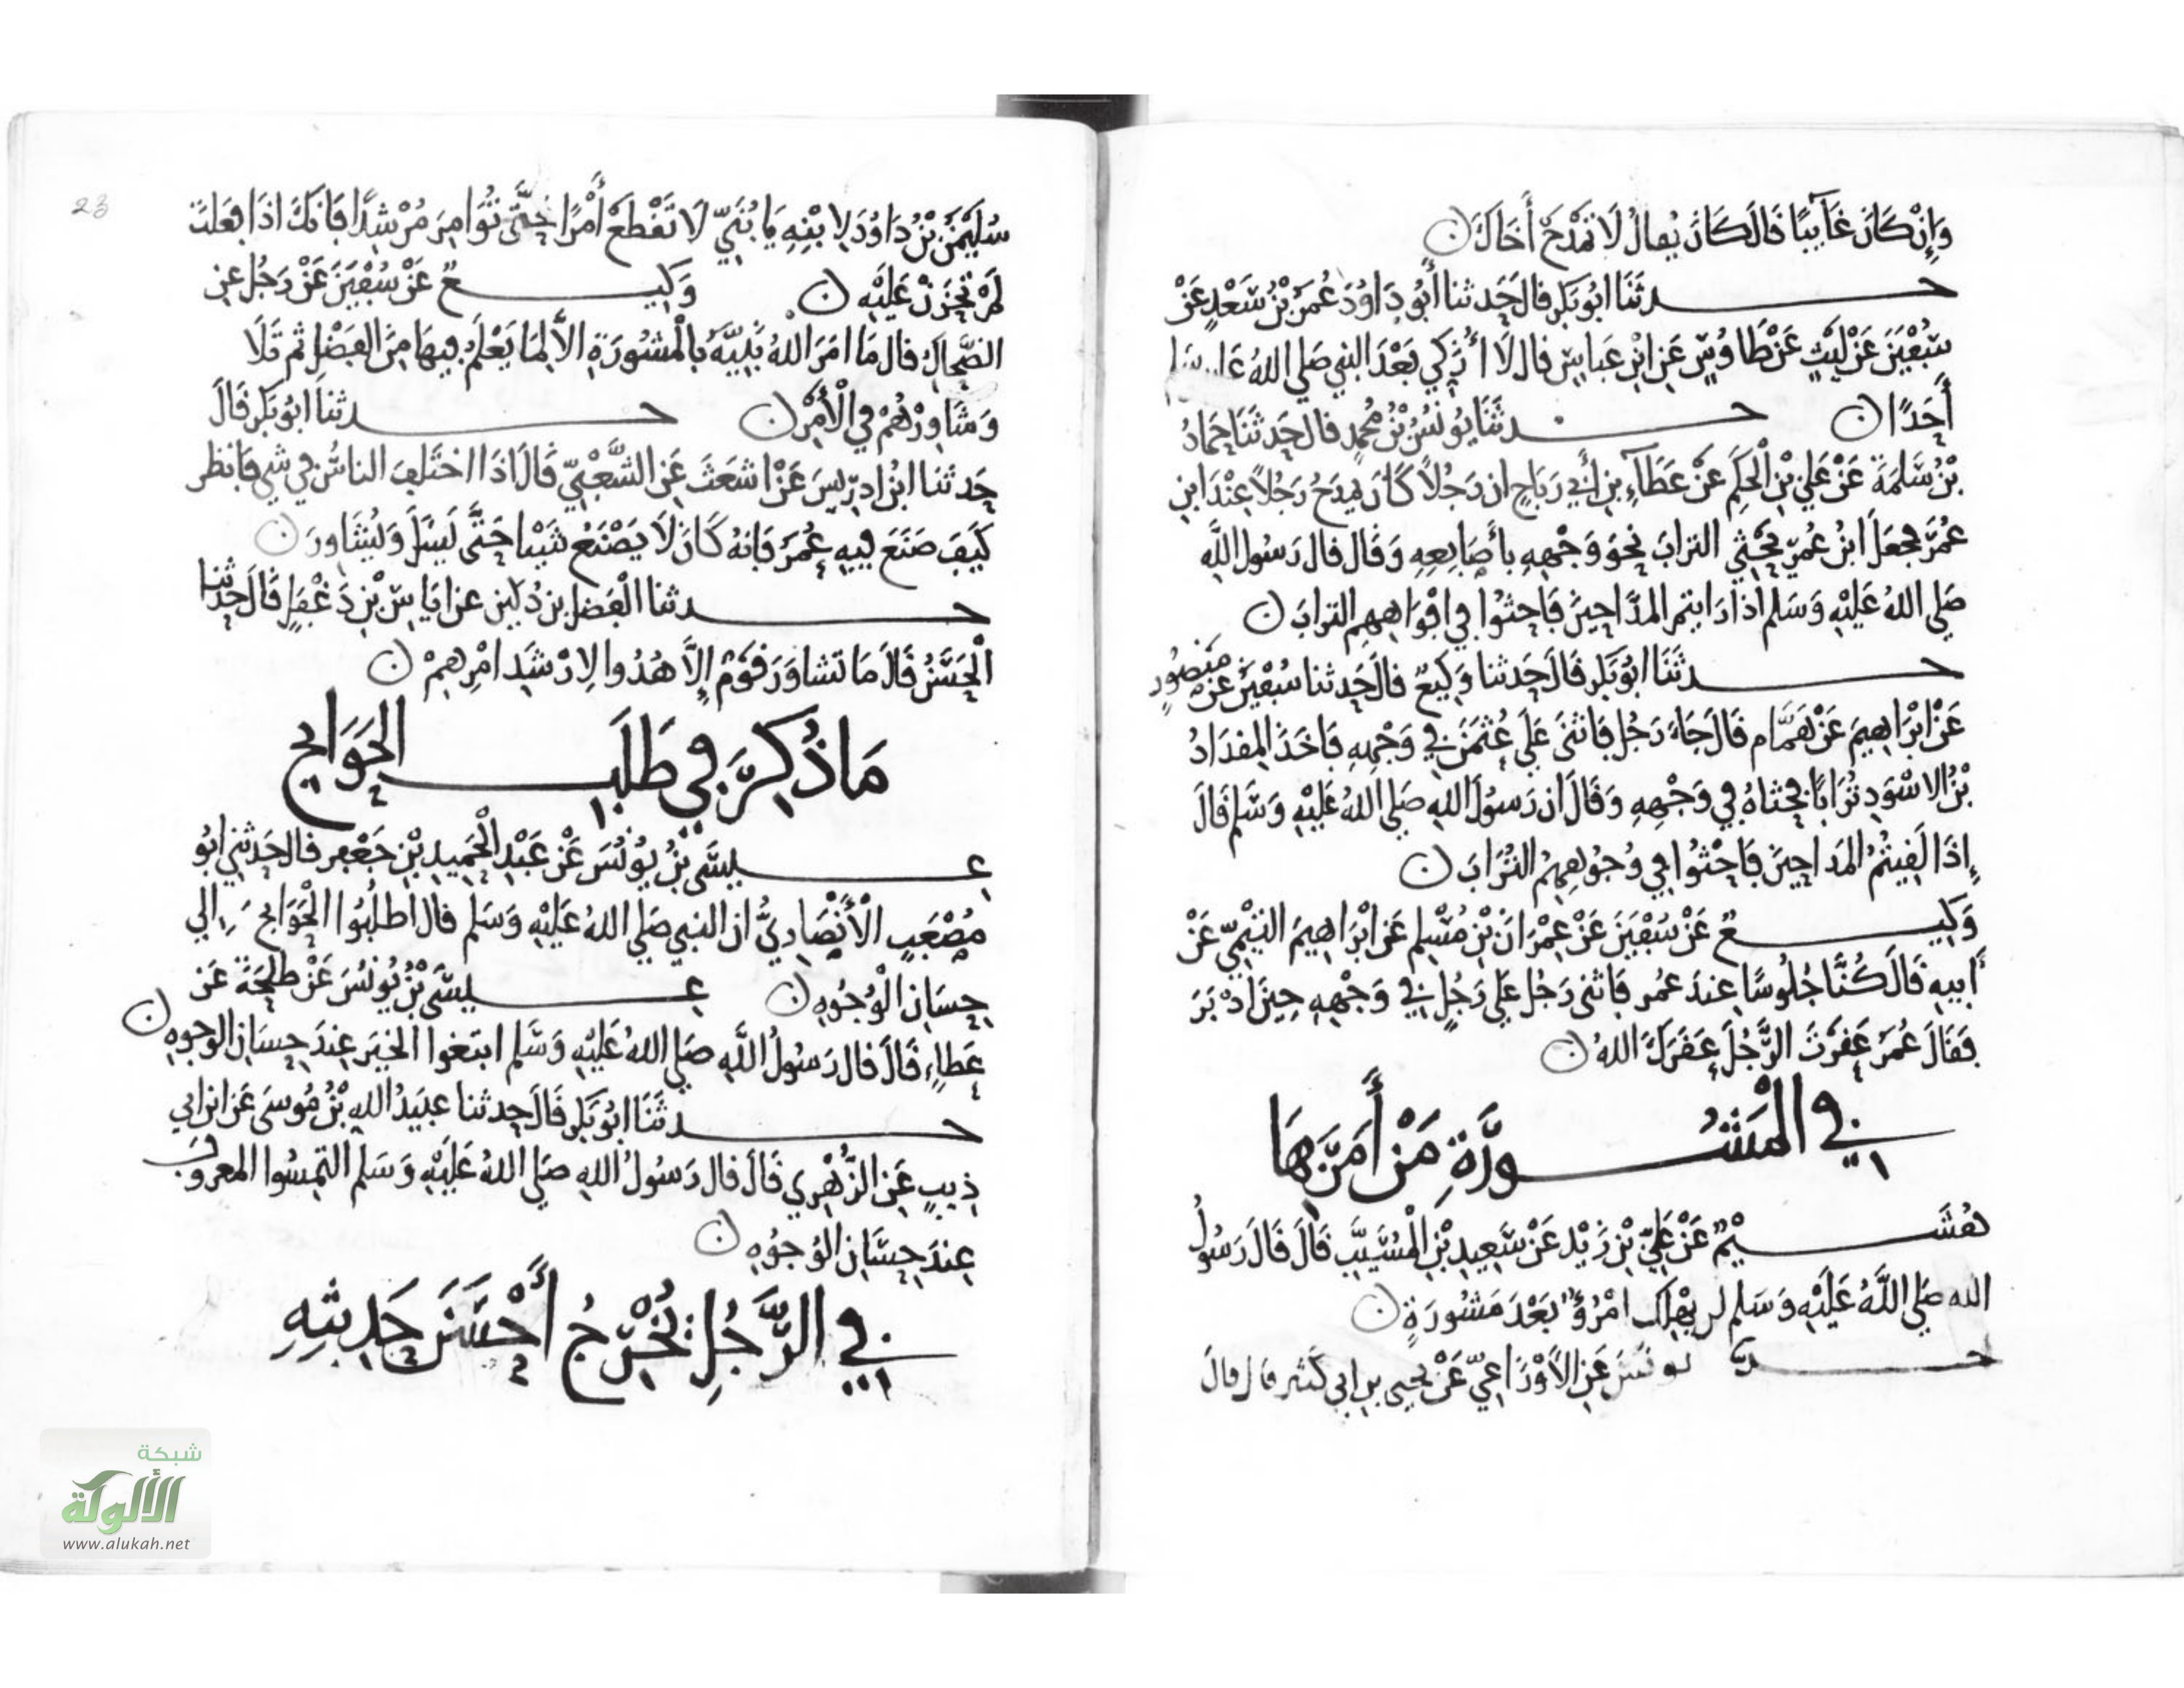 وَإِنْ كَانَ غَآيِبًا قَالَ كَانَ يُقالُ لَا تَمْدَحْ أَخَاكَ ن
حدثَنَا ابُو بَكرٍ قال حَدثنا أَبُو دَاوُدَ عُمَرُ بْنُ سَعْدٍ عَنْ
سُفْيَنَ عَنْ لَيْثٍ عَنْ طَاوُسٍ عَنِ ابْنِ عَباسٍ قال لَا أُزَكِّي بَعْدَ النبي صَلى اللهُ عَليه وسَلم
أَحَدًا ن حدثَنَا يُونُسُ بْنُ مُحمدٍ قال حَدثَنَا حَمادُ
بْنُ سَلَمَةَ عَنْ عَلي بْنِ الْحَكَمِ عَنْ عَطَآءِ بنِ أَبي رَبَاحٍ ان رَجُلاً كَانَ يَمدَحُ رَجُلاً عِنْدَ ابنِ
عُمَرَ فجعَلَ ابنُ عُمَرَ يَحْثِي الترابَ نحوَ وَجْهِهِ بأصَابِعِهِ وَقَال قال رَسُول اللَّهِ
صَلى اللهُ عَلَيْهِ وَسَلم اذا رَايتم المدَّاحِينَ فَاحثُوا في افْوَاهِهِم الترابَ ن
حدثَنَا ابُو بَكرٍ قَالَ حَدثنا وَكِيعٌ قالَ حَدثنا سُفْيَنُ عَنْ مَنصُورٍ
عَنْ ابْرَاهِيمَ عَنْ هَمَّامٍ قَالَ جَاءَ رَجُل فَاثنَى عَلَى عُثمَنَ في وَجْهِهِ فَاخَذَ المِقدَادُ
بْنُ الاسْوَدِ تُرَابًا فحثاهُ في وَجْهِهِ وَقَالَ ان رَسُولَ اللهِ صَلى اللهُ عَلَيْهِ وَسَلم قَالَ
إِذَا لَقِيتُمُ المَداحِينَ فَاحْثُوا في وُجُوهِهِمُ التُرَابَ ن
وَكِيعٌ عَنْ سُفْيَنَ عَنْ عِمْرَانَ بْنِ مُسْلِمٍ عَن ابْرَاهِيمَ التَيْمِيّ عَنْ
أبيهِ قَالَ كُنَّا جُلُوسًا عِندَ عُمَر فَاثنى رَجُل عَلى رَجُلٍ في وَجْهِهِ حِينَ ادْبَرَ
فَقَالَ عُمَرَ عَقَرْتَ الرَّجُلَ عَقَرَكَ اللهُ ن
في الْمَشُورَةِ مَنْ أَمَرَ بِهَا
هُشَيْمٌ عَنْ عَلِيّ بْنِ زَيْدٍ عَنْ سَعِيدِ بْنِ الْمُسَيَّبِ قَالَ قَالَ رَسُولُ
الله صَلي اللَّهُ عَلَيْهِ وَسَلم لن يَهْلِك امْرُؤٌ بَعْدَ مَشُورَةٍ ن
عَنِ الاَوْزَاعِيّ عَنْ يحيى بن ابي كَثير قال قالَ
23
سُلَيْمَنُ بْنُ دَاوُدَ لِابْنِهِ يَا بُنَيّ لَا تَقْطَعْ أَمْرًا حَتَّى تُؤَامِرَ مُرْشِدًا فَانكَ اذَا فعَلتَ
لَمْ تَحزَنْ عَلَيْهِ ن وَكِيعٌ عَنْ سُفْيَنَ عَنْ رَجُل عنِ
الضَّحاكِ قال مَا امَرَ اللهُ نَبِيَّهُ بِالْمشُورَةِ الاَّ لِمَا يَعْلَمُ فِيهَا مِنَ الفَضْل ثم تَلَا
وَشَاوِرْهُمْ في الْأَمْرِ ن حدثنَا ابُو بَكر قَالَ
حَدثنَا ابنُ ادرِيسَ عَنْ اشعَثَ عَنِ الشَّعْبِيّ قَالَ اذَا اختَلفَ الناسُ في شي فَانظر
كَيفَ صَنَعَ فِيهِ عُمَرُ فَانهُ كَانَ لَا يَصْنَعُ شَيْيا حَتَّى يَسَلَ وَيُشَاورَ ن
حدثنا الفَضل بن دُكَين عن ايَاسِ بْنِ دَغْفَلٍ قَالَ حَدثنا
الْحَسَنُ قَالَ مَا تشاوَرَ قَوْم إِلاَّ هُدُوا لِارْشَدِ امْرِهِمْ ن
مَا ذُكِرَ في طَلَبِ الحَوَايج
عِيسَى بْنُ يُونُسَ عَنْ عَبْدِ الْحَمِيدِ بْنِ جَعْفر قال حَدثني ابُو
مُصْعَبٍ الْأَنْصَارِيُّ ان النبي صَلي اللهُ عَلَيْهِ وَسَلم قال اطلُبُوا الْحَوَايجَ الي
حِسَانِ الْوُجُوهِ ن عِيسَى بْنُ يُونُسَ عَنْ طلْحَةَ عَن
عَطاءٍ قَالَ قال رَسُولُ اللَّهِ صَلي اللهُ عَلَيْهِ وَسَلم ابتغوا الخيَر عِندَ حِسَانِ الوجوهِ ن
حدثَنَا ابُو بَكرٍ قَالَ حدثنا عبَيْدُ اللهِ بْنُ مُوسَى عَن ابن ابي
ذِيبٍ عَنِ الزُّهْرِي قَالَ قال رَسُولُ اللهِ صَلي اللهُ عَلَيْهِ وَسَلم التَمِسُوا المعروفَ
عِندَ حِسَانِ الوُجُوْهِ ن
في الرَّجُلِ يُخْرِجُ أَحْسَنَ حَدِيثِهِ
شبكة
الألوكة
www.alukah.net